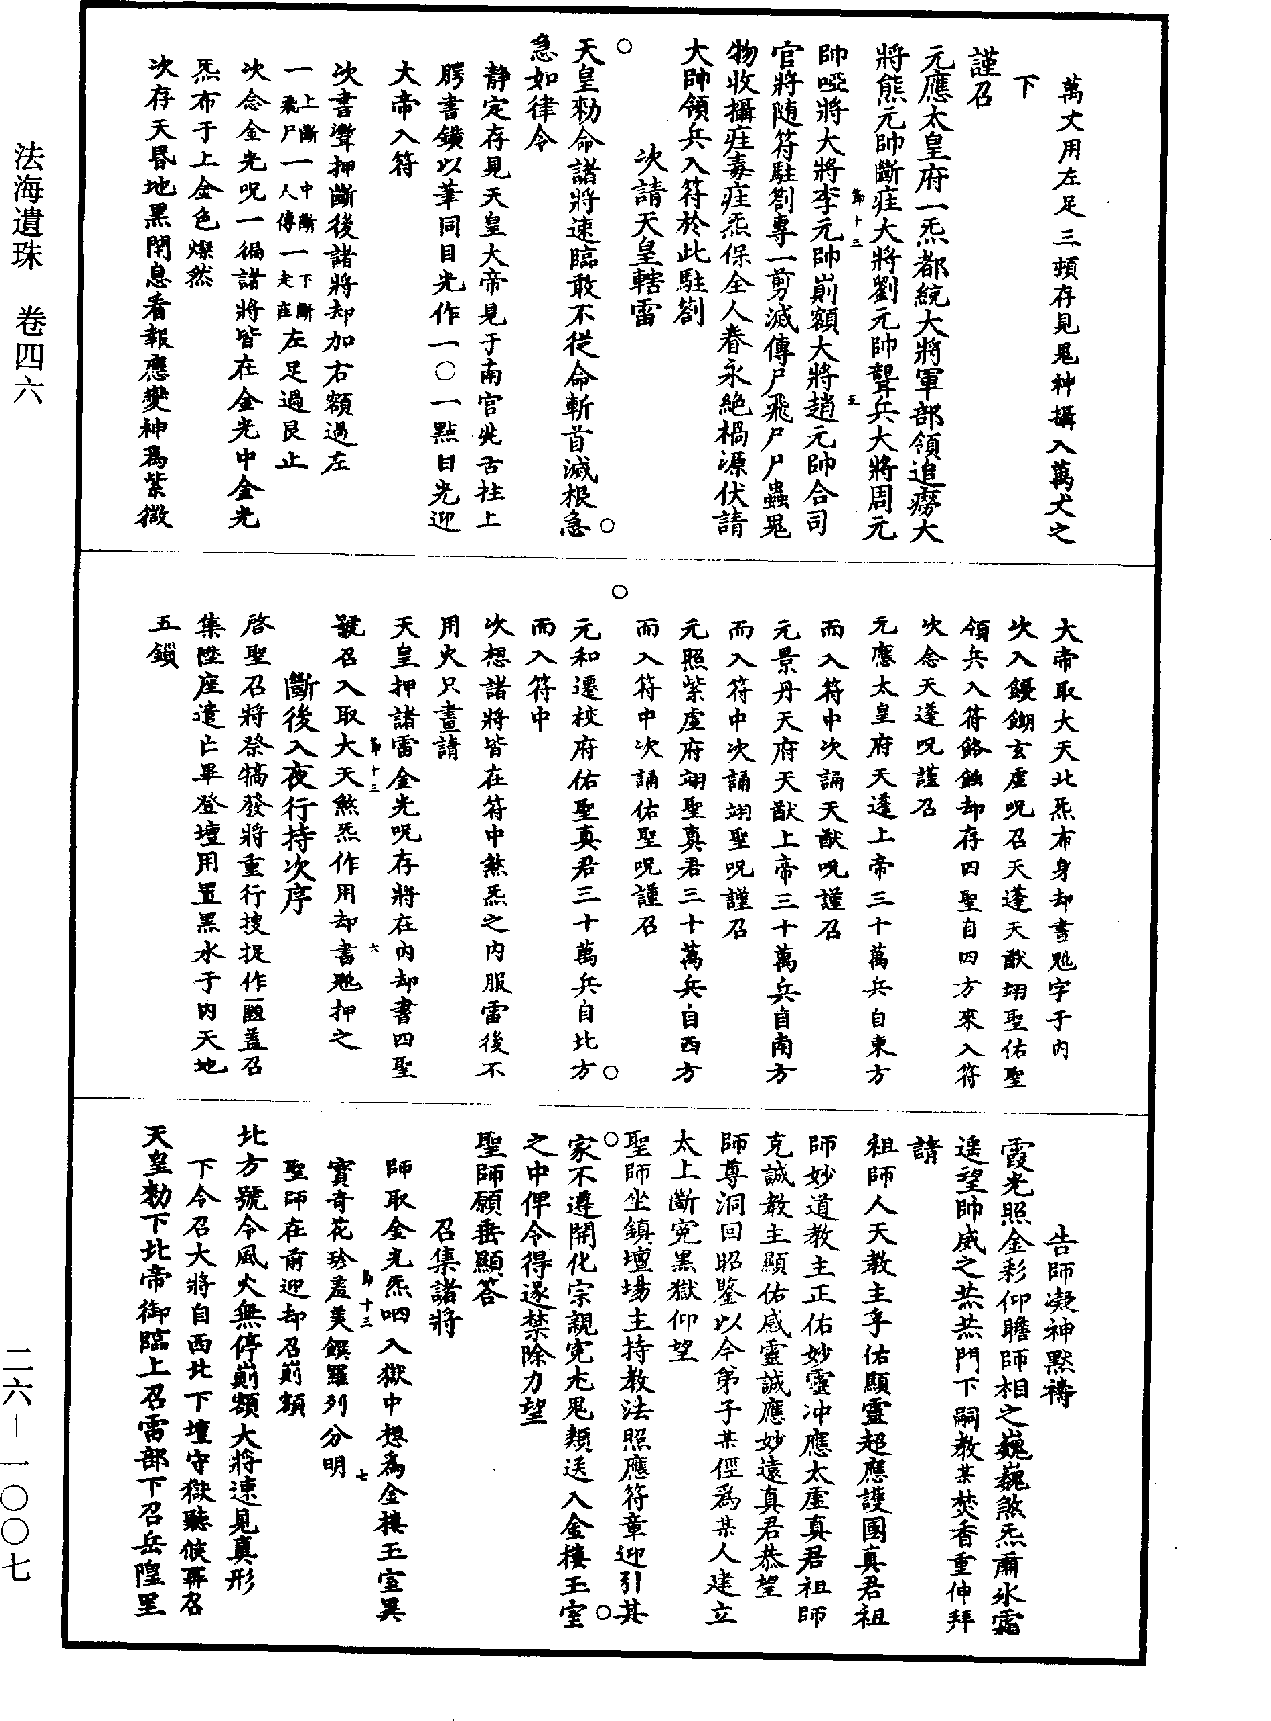 萬丈用左足三頓存見鬼神攝入萬丈之
下
謹召
元應太皇府一炁都統大將軍部領追癆大
將熊元帥斷疰大將劉元帥聾兵大將周元
帥啞將大將李元帥崩額大將趙元帥合司
官將隨符駐劄專一剪滅傳尸飛尸尸蟲鬼
物收攝疰毒疰炁保全人眷永絕禍源伏請
大帥領兵入符於此駐劄
次請天皇轄雷
天皇勑命諸將速臨敢不從命斬首滅根急
急如律令
靜定存見天皇大帝見于南宮先舌拄上
腭書鑛以筆同目光作一〇一點日光迎
大帝入符
次書灣押斷後諸將却加右額過左
一上斷飛尸一中斷人傳一下斷走疰左足過艮止
次念金光呪一徧諸將皆在金光中金光
炁布于上金色燦然
次存天昏地黑閉息看報應變神爲紫微
大帝取大天北炁布身却書魒字于内
次入饅𩜶玄虛呪召天蓬天猷翊聖佑聖
領兵入符餎蝕却存四聖自四方來入符
次念天蓬呪謹召
元應太皇府天蓬上帝三十萬兵自東方
而入符中次誦天猷呪謹召
元景丹天府天猷上帝三十萬兵自南方
而入符中次誦翊聖呪謹召
元照紫虛府翊聖真君三十萬兵自西方
而入符中次誦佑聖呪謹召
元和遷校府佑聖真君三十萬兵自北方
而入符中
次想諸將皆在符中煞炁之内服雷後不
用火只晝請
天皇押諸雷金光呪存將在内却書四聖
號召入取大天煞炁作用却書魒押之
斷後入夜行持次序
啓聖召將祭犒發將重行捜捉作𩵋蓋召
集陞座遣亡畢登壇用置黑水于内天地
五鎖
告師凝神默禱
霞光照金彩仰瞻師相之巍巍煞炁肅氷霜
遥望帥威之烝烝門下嗣教某焚香重伸拜
請
祖師人天教主孚佑顯靈超應護國真君祖
師妙道教主正佑妙靈冲應太虛真君祖師
克誠教主顯佑感靈誠應妙遠真君恭望
師尊洞回昭鑒以今弟子某徑爲某人建立
太上斷寃黑獄仰望
聖師坐鎮壇場主持教法照應符章迎引其
家不遵開化宗親寃尢鬼類送入金樓玉室
之中俾令得遂禁除力望
聖師願垂顯答
召集諸將
師取金光炁呬入獄中想爲金樓玉室異
寳奇花珍羞美饌羅列分明
聖師在前迎却召崩額
北方號令風火無停崩額大將速見真形
下令召大將自西北下壇守獄聽候再召
天皇勑下北帝御臨上召雷部下召岳隍里
法海遺珠 卷四六
二六—一〇〇七